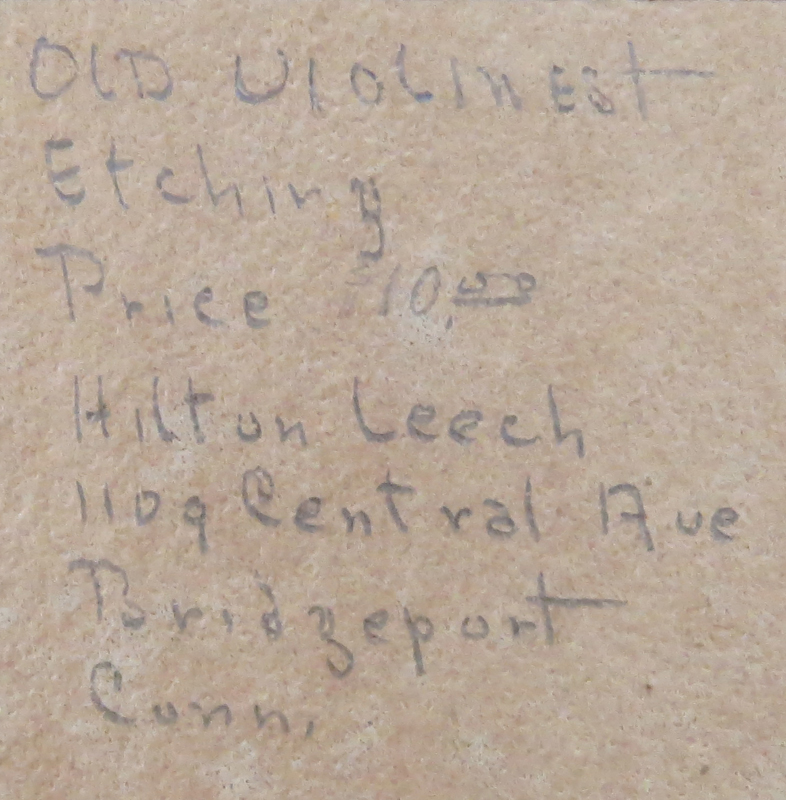 OLD VIOLINEST
Etching
Price $10.00
Hilton Leech
1109 Central Ave
Bridgeport
Conn.